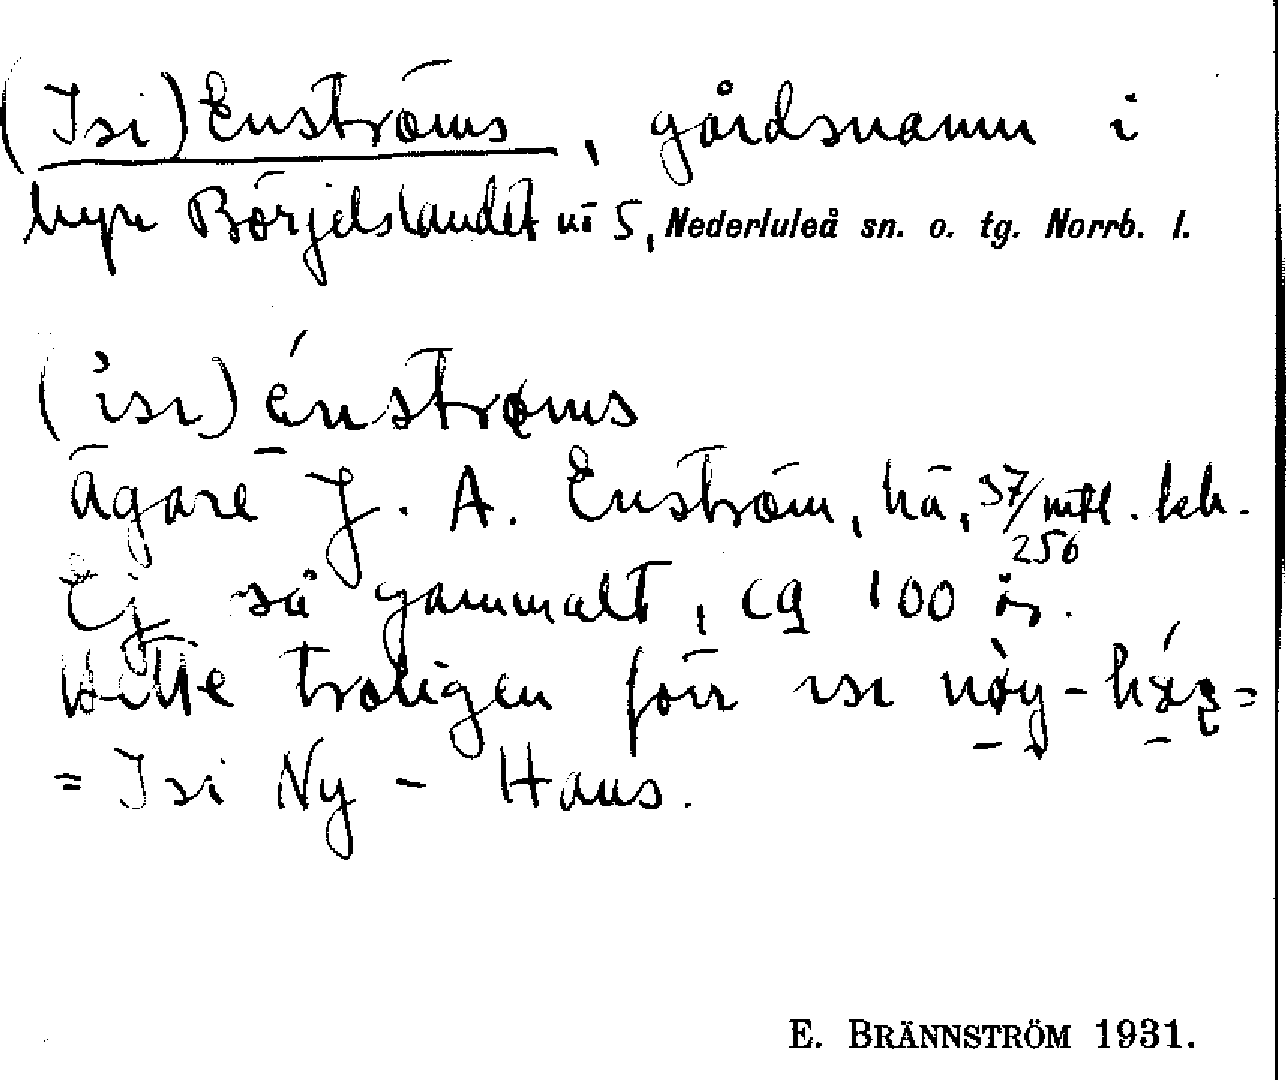 (Isi) Enströms, gårdsnamn i
byn Börjelslandet nr 5, Nederluleå sn. o. tg. Norrb. l.
(ısı) énstrøms
Ägare J. A. Enström, hä, 37/256 mtl. kr.
Ej så gammalt, ca 100 år.
Hette troligen förr ısı nøy-
= Isi Ny - Hans.
E. BRÄNNSTRÖM 1931.